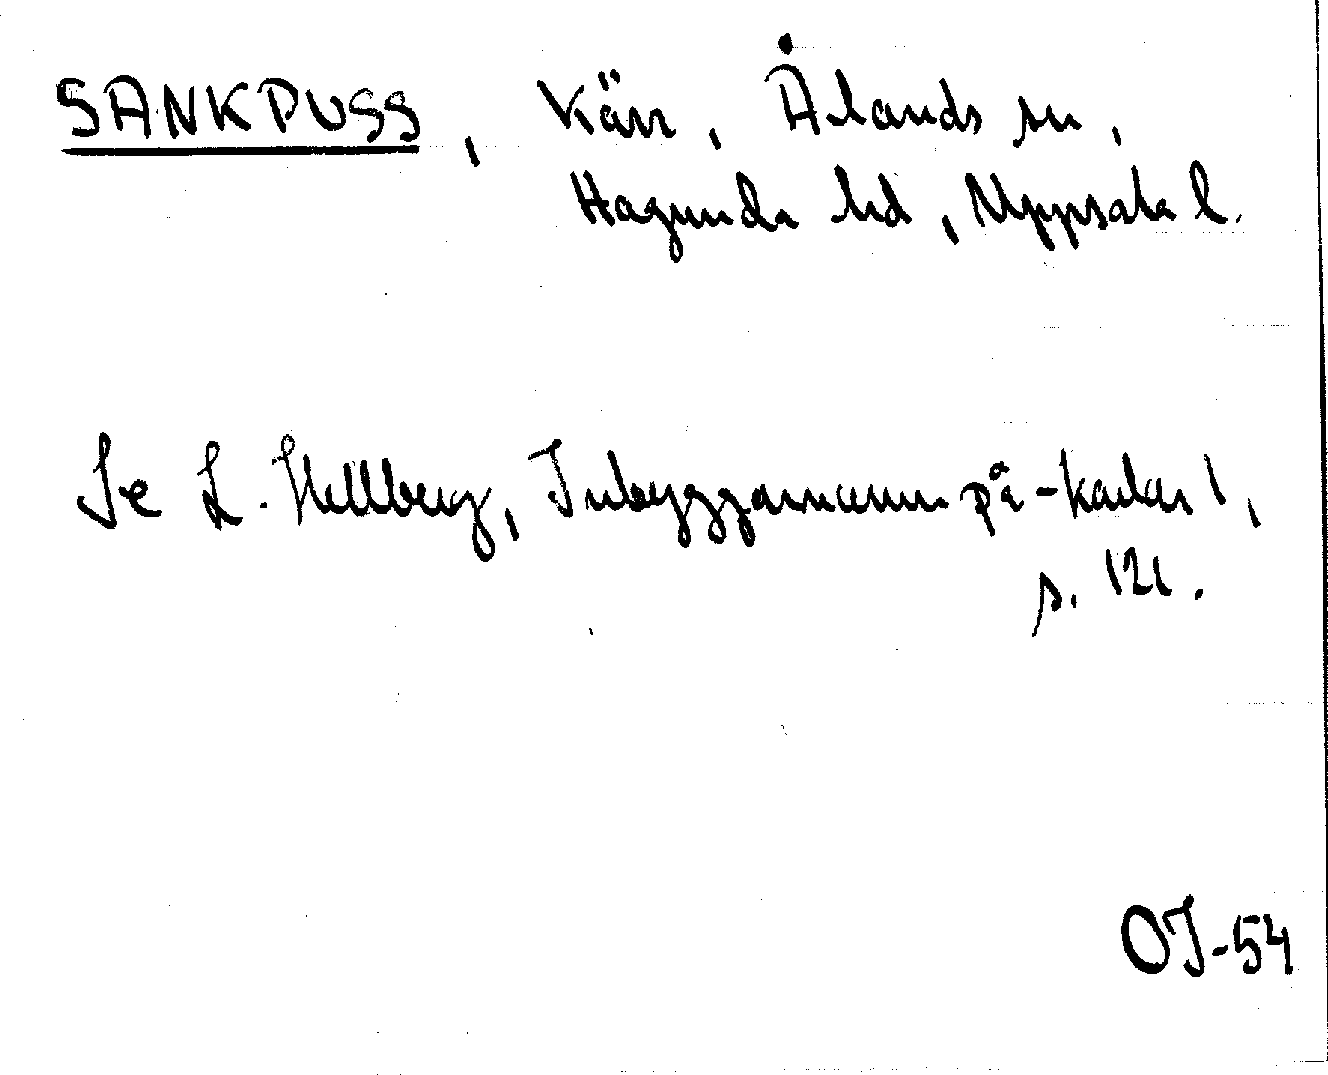 SANKPUSS, Kärr, Ålands sn,
Hagunda hd, Uppsala l.
Se L. Hellberg, Inbyggarnamn på -karlar 1,
s. 121.
OJ-54